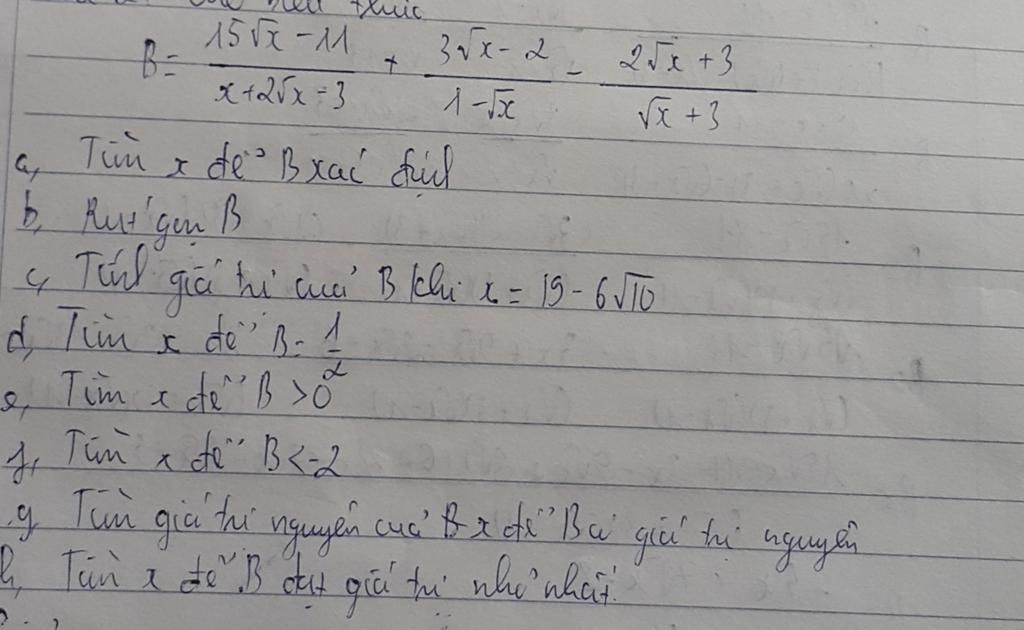 biểu thức
B = \frac{15\sqrt{x} - 11}{x + 2\sqrt{x} - 3} + \frac{3\sqrt{x} - 2}{1 - \sqrt{x}} - \frac{2\sqrt{x} + 3}{\sqrt{x} + 3}
a, Tìm x để B xác định
b, Rút gọn B
c, Tính giá trị của B khi x = 19 - 6\sqrt{10}
d, Tìm x để B = \frac{1}{2}
e, Tìm x để B > 0
f, Tìm x để B < -2
g, Tìm giá trị nguyên của x để B có giá trị nguyên
h, Tìm x để B đạt giá trị nhỏ nhất.